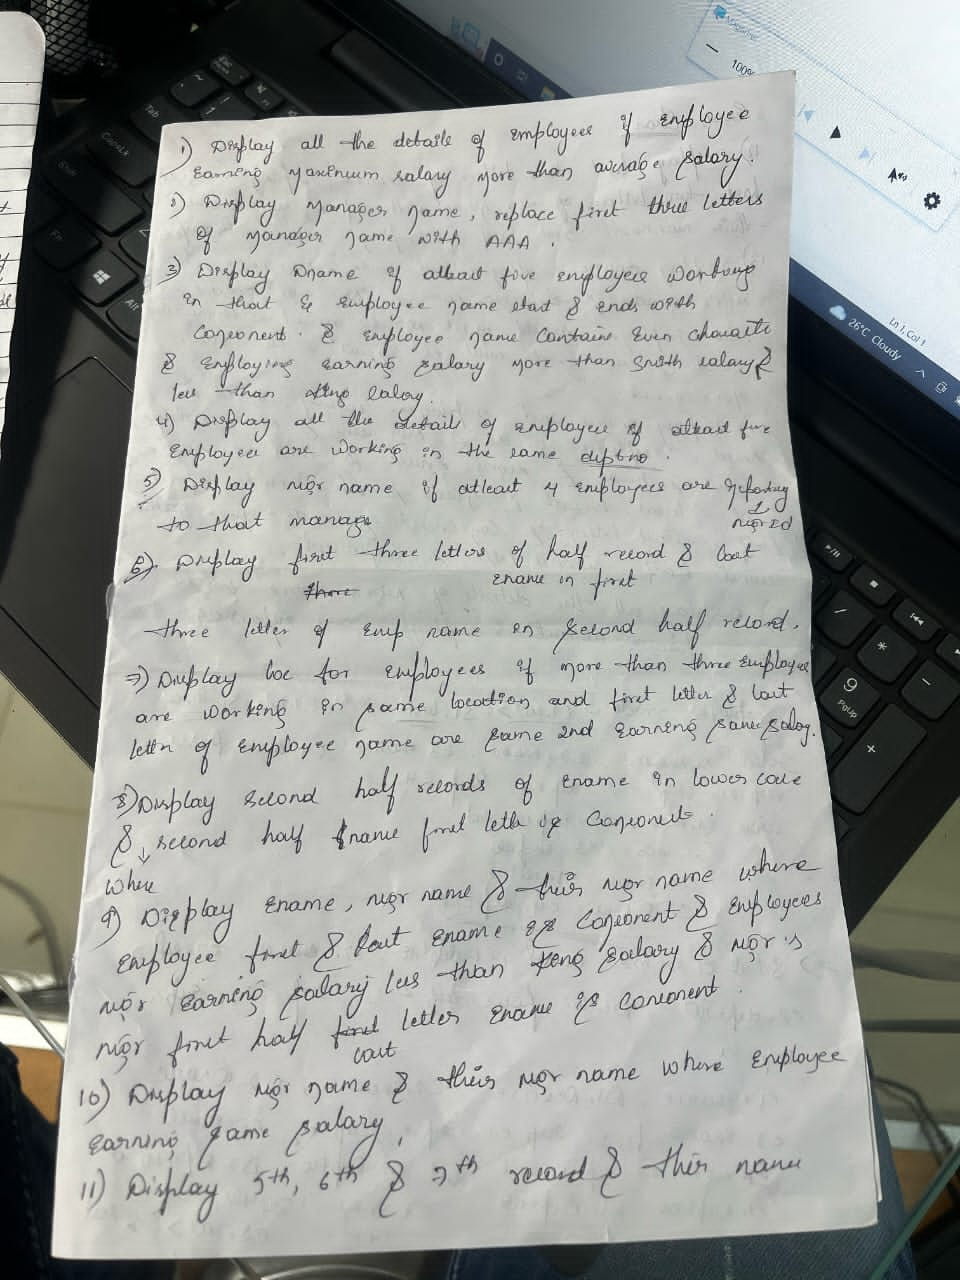 1) Display all the details of employees if employee
Earning maximum salary more than average salary.
2) Display manager name, replace first three letters
of manager name with AAA.
3) Display Dname if atleast five employees working
in that & Employee name start & ends with
Consonent. & employee name Contains Even
& Employing Earning salary more than Smith salary &
less than king salary.
4) Display all the details of employee if atleast five
Employees are working in the same deptno.
5) Display mgr name if atleast 4 employees are reporting
to that manager
mgrId
6) Display first three letters of half record & last
Ename in first
three letter of emp name in second half record.
7) Display loc for Employees if more than three Employee
are working in same location and first letter & last
letter of Employee name are same and Earning same salary.
8) Display second half records of Ename in lower case
& second half Ename first letter is Consonents.
where
9) Display Ename, mgr name & their mgr name where
employee first & last Ename is Consonent & Employees
mgr Earning salary less than king salary & mgr's
mgr first half letter Ename is Consonent.
last
10) Display mgr name & their mgr name where Employee
Earning same salary,
11) Display 5th, 6th & 7th record & their name
Esc
Tab
CapsLk
Fn
Alt
9
PgUp
+
-
*
/
100%
26°C Cloudy
Ln 1, Col 1